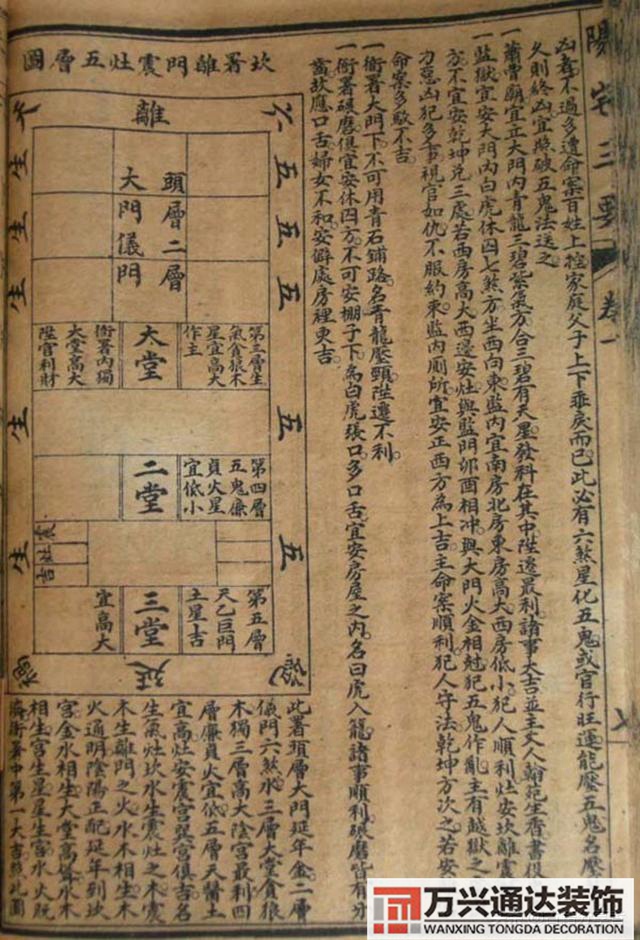 陽宅三要 卷一
凶毒不過多遭命案百姓上控家庭父子上下乖戾而已此必有六煞星化五鬼或官行旺運能壓五鬼名壓
久則終凶宜照破五鬼法送之
一蕭曹廟宜立大門內青龍三碧紫氣方合三碧有天星發科在其中陞遷最利諸事大吉並主文人翰苑生香書役
一監獄宜安大門內白虎休囚七煞方坐西向東監內宜南房北房東房高大西房低小犯人順利灶安坎離震
方不宜安乾坤兌三處若西房高大西邊安灶與監門卯酉相冲與大門火金相尅犯五鬼作亂主有越獄之
方惡凶犯多事視官如仇不服約束監內厠所宜安正西方為上吉主命案順利犯人守法乾坤方次之若安
命案多駁不吉
一衙署大門下不可用青石鋪路名青龍壓頸陞遷不利
一衙署碾磨俱宜安休囚方不可安棚子下為白虎張口多口舌宜安房屋之內名曰虎入籠諸事順利碾磨皆有分
畜故應口舌婦女不和安僻處房裡更吉
坎署離門震灶五層圖
六
離
天
五
五
五
五
五
生
生
生
生
生
頭層二層
大門儀門
第三層生
氣貪狼木
星宜高大
作主
大堂
衙署內獨
大堂高大
陞官利財
第四層
五鬼廉
貞火星
宜低小
二堂
震灶吉
第五層
天乙巨門
土星吉
三堂
宜高大
延
此署頭層大門延年金二層
儀門六煞水三層大堂貪狼
木獨三層高大陰宮最利四
層廉貞火宜低五層天醫土
宜高灶安震宮巽宮俱吉名
生氣灶坎水生震灶之木震
木生離門之火水木相生木
火通明陰陽正配延年到坎
宮金水相生大堂高聳水木
相生宮生星星生宮水火既
濟衙署中第一大吉照此圖
万兴通达装饰
WANXING TONGDA DECORATION